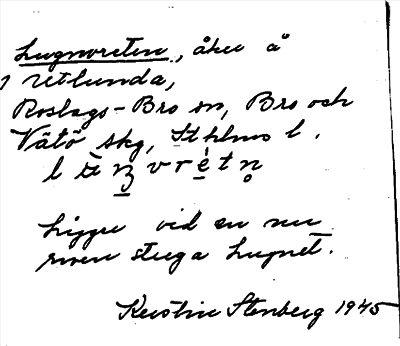 Lugnvreten, åker å
Utlunda,
Roslags-Bro sn, Bro och
Vätö skg, Sthlms l.
Ligger vid en nu
riven stuga Lugnet.
Kerstin Stenberg 1945